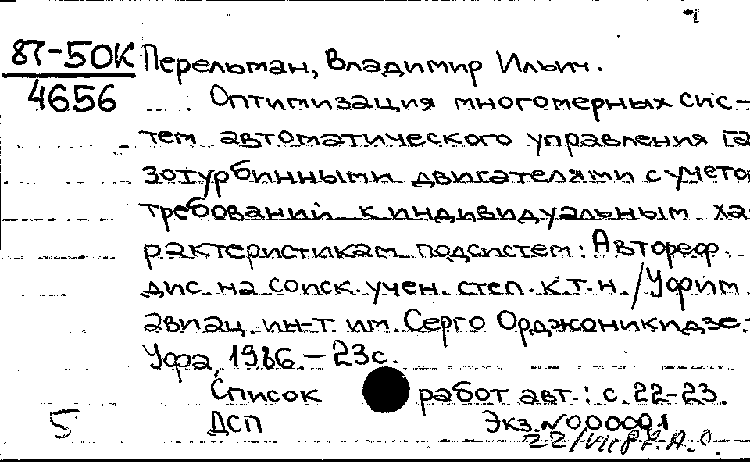 87-50К Перельман, Владимир Ильич.
4656 Оптимизация многомерных сис-
тем автоматического управления га
зотурбинными двигателями с учето
требований к индивидуальным ха
рактеристикам подсистем: Автореф.
дис. на соиск. учен. степ. к.т.н. / Уфим.
авиац. ин-т. им. Серго Орджоникидзе.-
Уфа, 1986. - 23с.
Список работ авт.: с. 22-23.
5 ДСП Экз. №000001